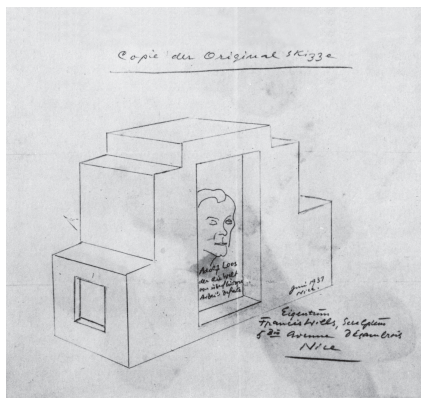 Copie der Original Skizze
Adolf Loos
der die Welt
von überflüssiger
Arbeit befreite
Juni 1931
Nice
Eigentum
Francis Wills, Sculpteur
Avenue Désambrois
Nice